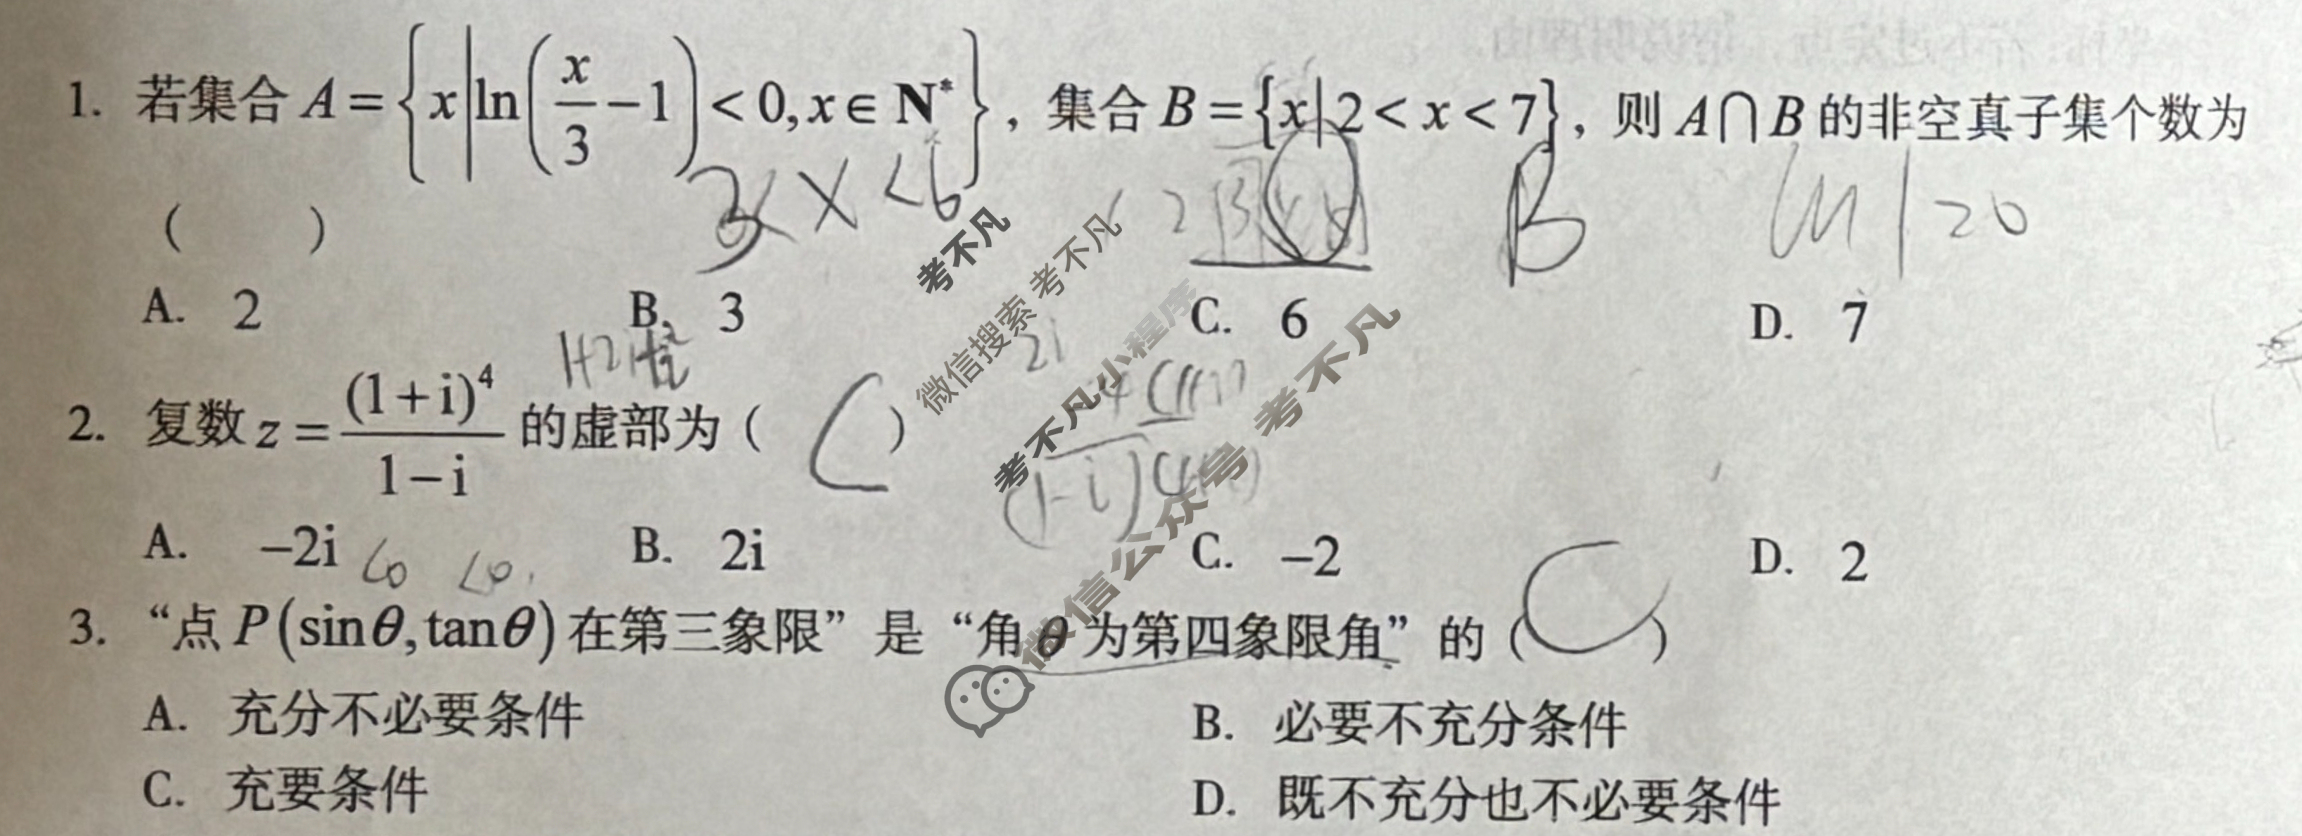 1. 若集合 A = { x | ln( x/3 − 1 ) < 0, x ∈ N* }，集合 B = {x | 2 < x < 7}，则 A ∩ B 的非空真子集个数为
(　　)
3 < x < 6
B
A. 2　B. 3　C. 6　D. 7
2. 复数 z = (1+i)⁴ / (1−i) 的虚部为 ( C )
A. −2i　B. 2i　C. −2　D. 2
<0　<0
3. “点 P(sinθ, tanθ) 在第三象限” 是 “角 θ 为第四象限角” 的 ( C )
A. 充分不必要条件　B. 必要不充分条件
C. 充要条件　D. 既不充分也不必要条件
考不凡
微信搜索 考不凡
考不凡小程序
微信公众号 考不凡